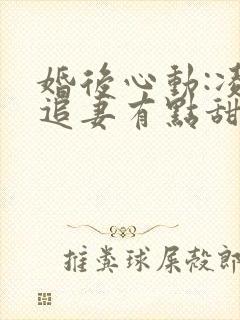 婚後心動:凌
追妻有點甜
推糞球屎殼郎